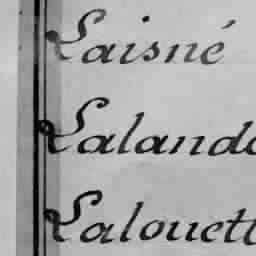 Laisné
Laland
Lalouett